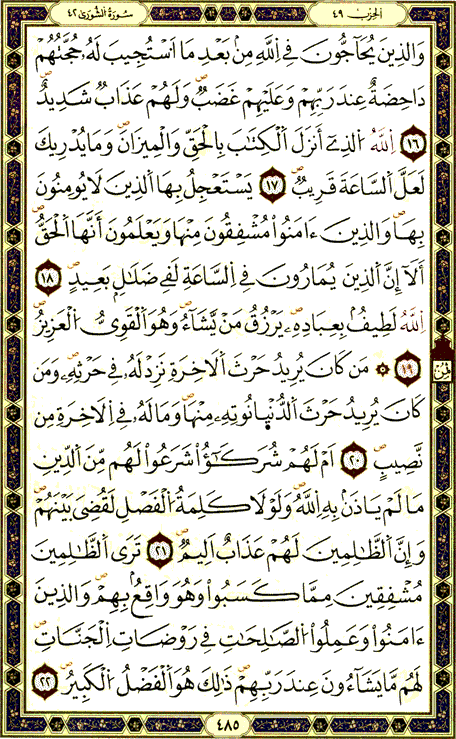 الحزب ٤٩
سورة الشورى ٤٢
وَالذِينَ يُحَآجُّونَ فِے اِللَّهِ مِنۢ بَعْدِ مَا اَسْتُجِيبَ لَهُۥ حُجَّتُهُمْ
دَاحِضَةٌ عِندَ رَبِّهِمْ وَعَلَيْهِمْ غَضَبٌ وَلَهُمْ عَذَابٌ شَدِيدٌ
١٦ اِللَّهُ اُلذِےٓ أَنزَلَ اَلْكِتَٰبَ بِالْحَقِّ وَالْمِيزَانَ وَمَا يُدْرِيكَ
لَعَلَّ اَلسَّاعَةَ قَرِيبٌ ١٧ يَسْتَعْجِلُ بِهَا اَلذِينَ لَا يُومِنُونَ
بِهَا وَالذِينَ ءَامَنُواْ مُشْفِقُونَ مِنْهَا وَيَعْلَمُونَ أَنَّهَا اَلْحَقُّ
أَلَآ إِنَّ اَلذِينَ يُمَارُونَ فِے اِلسَّاعَةِ لَفِے ضَلَٰلِۢ بَعِيدٍ ١٨
اِللَّهُ لَطِيفُۢ بِعِبَادِهِۦ يَرْزُقُ مَنْ يَّشَآءُ وَهُوَ اَلْقَوِيُّ اُلْعَزِيزُ
١٩ ۞ مَن كَانَ يُرِيدُ حَرْثَ اَلَاخِرَةِ نَزِدْ لَهُۥ فِے حَرْثِهِۦ وَمَن
كَانَ يُرِيدُ حَرْثَ اَلدُّنْيَا نُوتِهِۦ مِنْهَا وَمَا لَهُۥ فِے اِلَاخِرَةِ مِن
نَّصِيبٍ ٢٠ اَمْ لَهُمْ شُرَكَٰٓؤُاْ شَرَعُواْ لَهُم مِّنَ اَلدِّينِ
مَا لَمْ يَاذَنۢ بِهِ اِللَّهُ وَلَوْلَا كَلِمَةُ اُلْفَصْلِ لَقُضِيَ بَيْنَهُمْ
وَإِنَّ اَلظَّٰلِمِينَ لَهُمْ عَذَابٌ اَلِيمٌ ٢١ تَرَى اَلظَّٰلِمِينَ
مُشْفِقِينَ مِمَّا كَسَبُواْ وَهُوَ وَاقِعُۢ بِهِمْ وَالذِينَ
ءَامَنُواْ وَعَمِلُواْ اُلصَّٰلِحَٰتِ فِے رَوْضَاتِ اِلْجَنَّاتِ
لَهُم مَّا يَشَآءُونَ عِندَ رَبِّهِمْ ذَٰلِكَ هُوَ اَلْفَضْلُ اُلْكَبِيرُ ٢٢
ثمن
٤٨٥